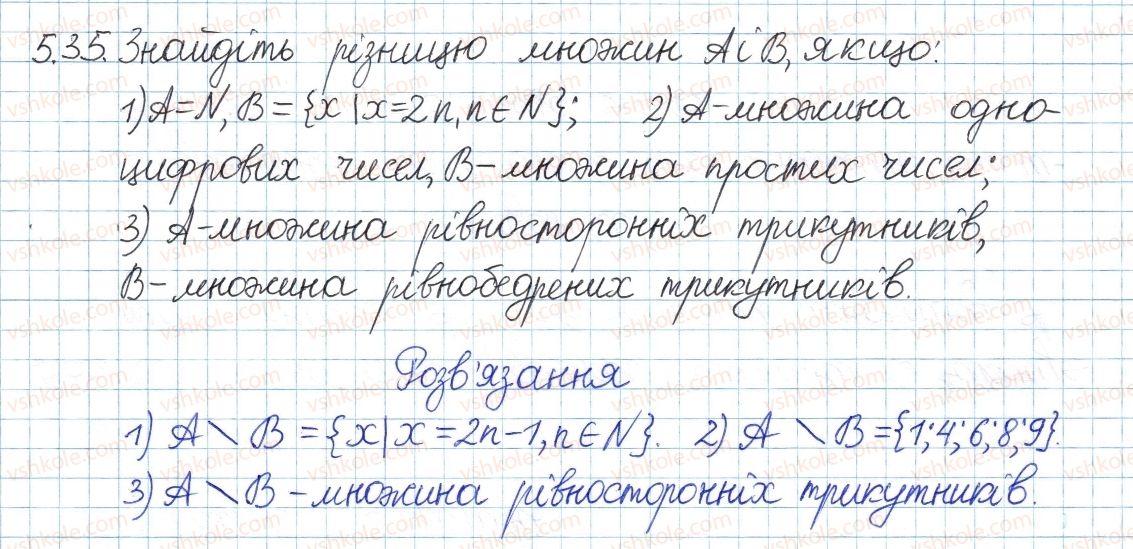 5.35. Знайдіть різницю множин A і B, якщо:
1) A=N, B={x|x=2n, n∈N}; 2) A-множина одно-
цифрових чисел, B-множина простих чисел;
3) A-множина рівносторонніх трикутників,
B-множина рівнобедрених трикутників.
Розв'язання
1) A\B={x|x=2n-1, n∈N}. 2) A\B={1;4;6;8;9}.
3) A\B-множина рівносторонніх трикутників.